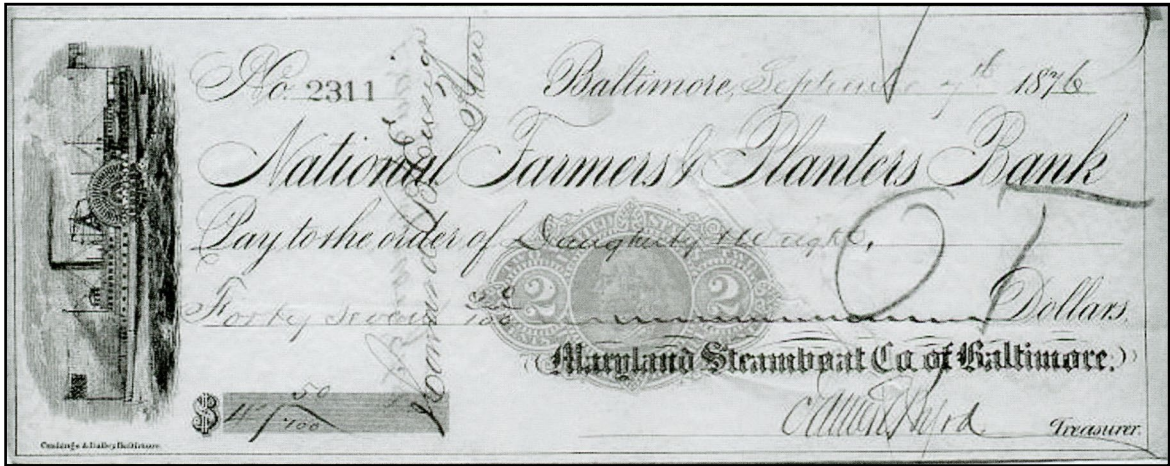 No. 2311 Baltimore, September 7th 1876
National Farmers & Planters Bank
Pay to the order of Daugherty & Wright,
2 2
Forty seven 50/100 Dollars
Maryland Steamboat Co. of Baltimore.
$ 47 50/100
Treasurer.
Baltimore.